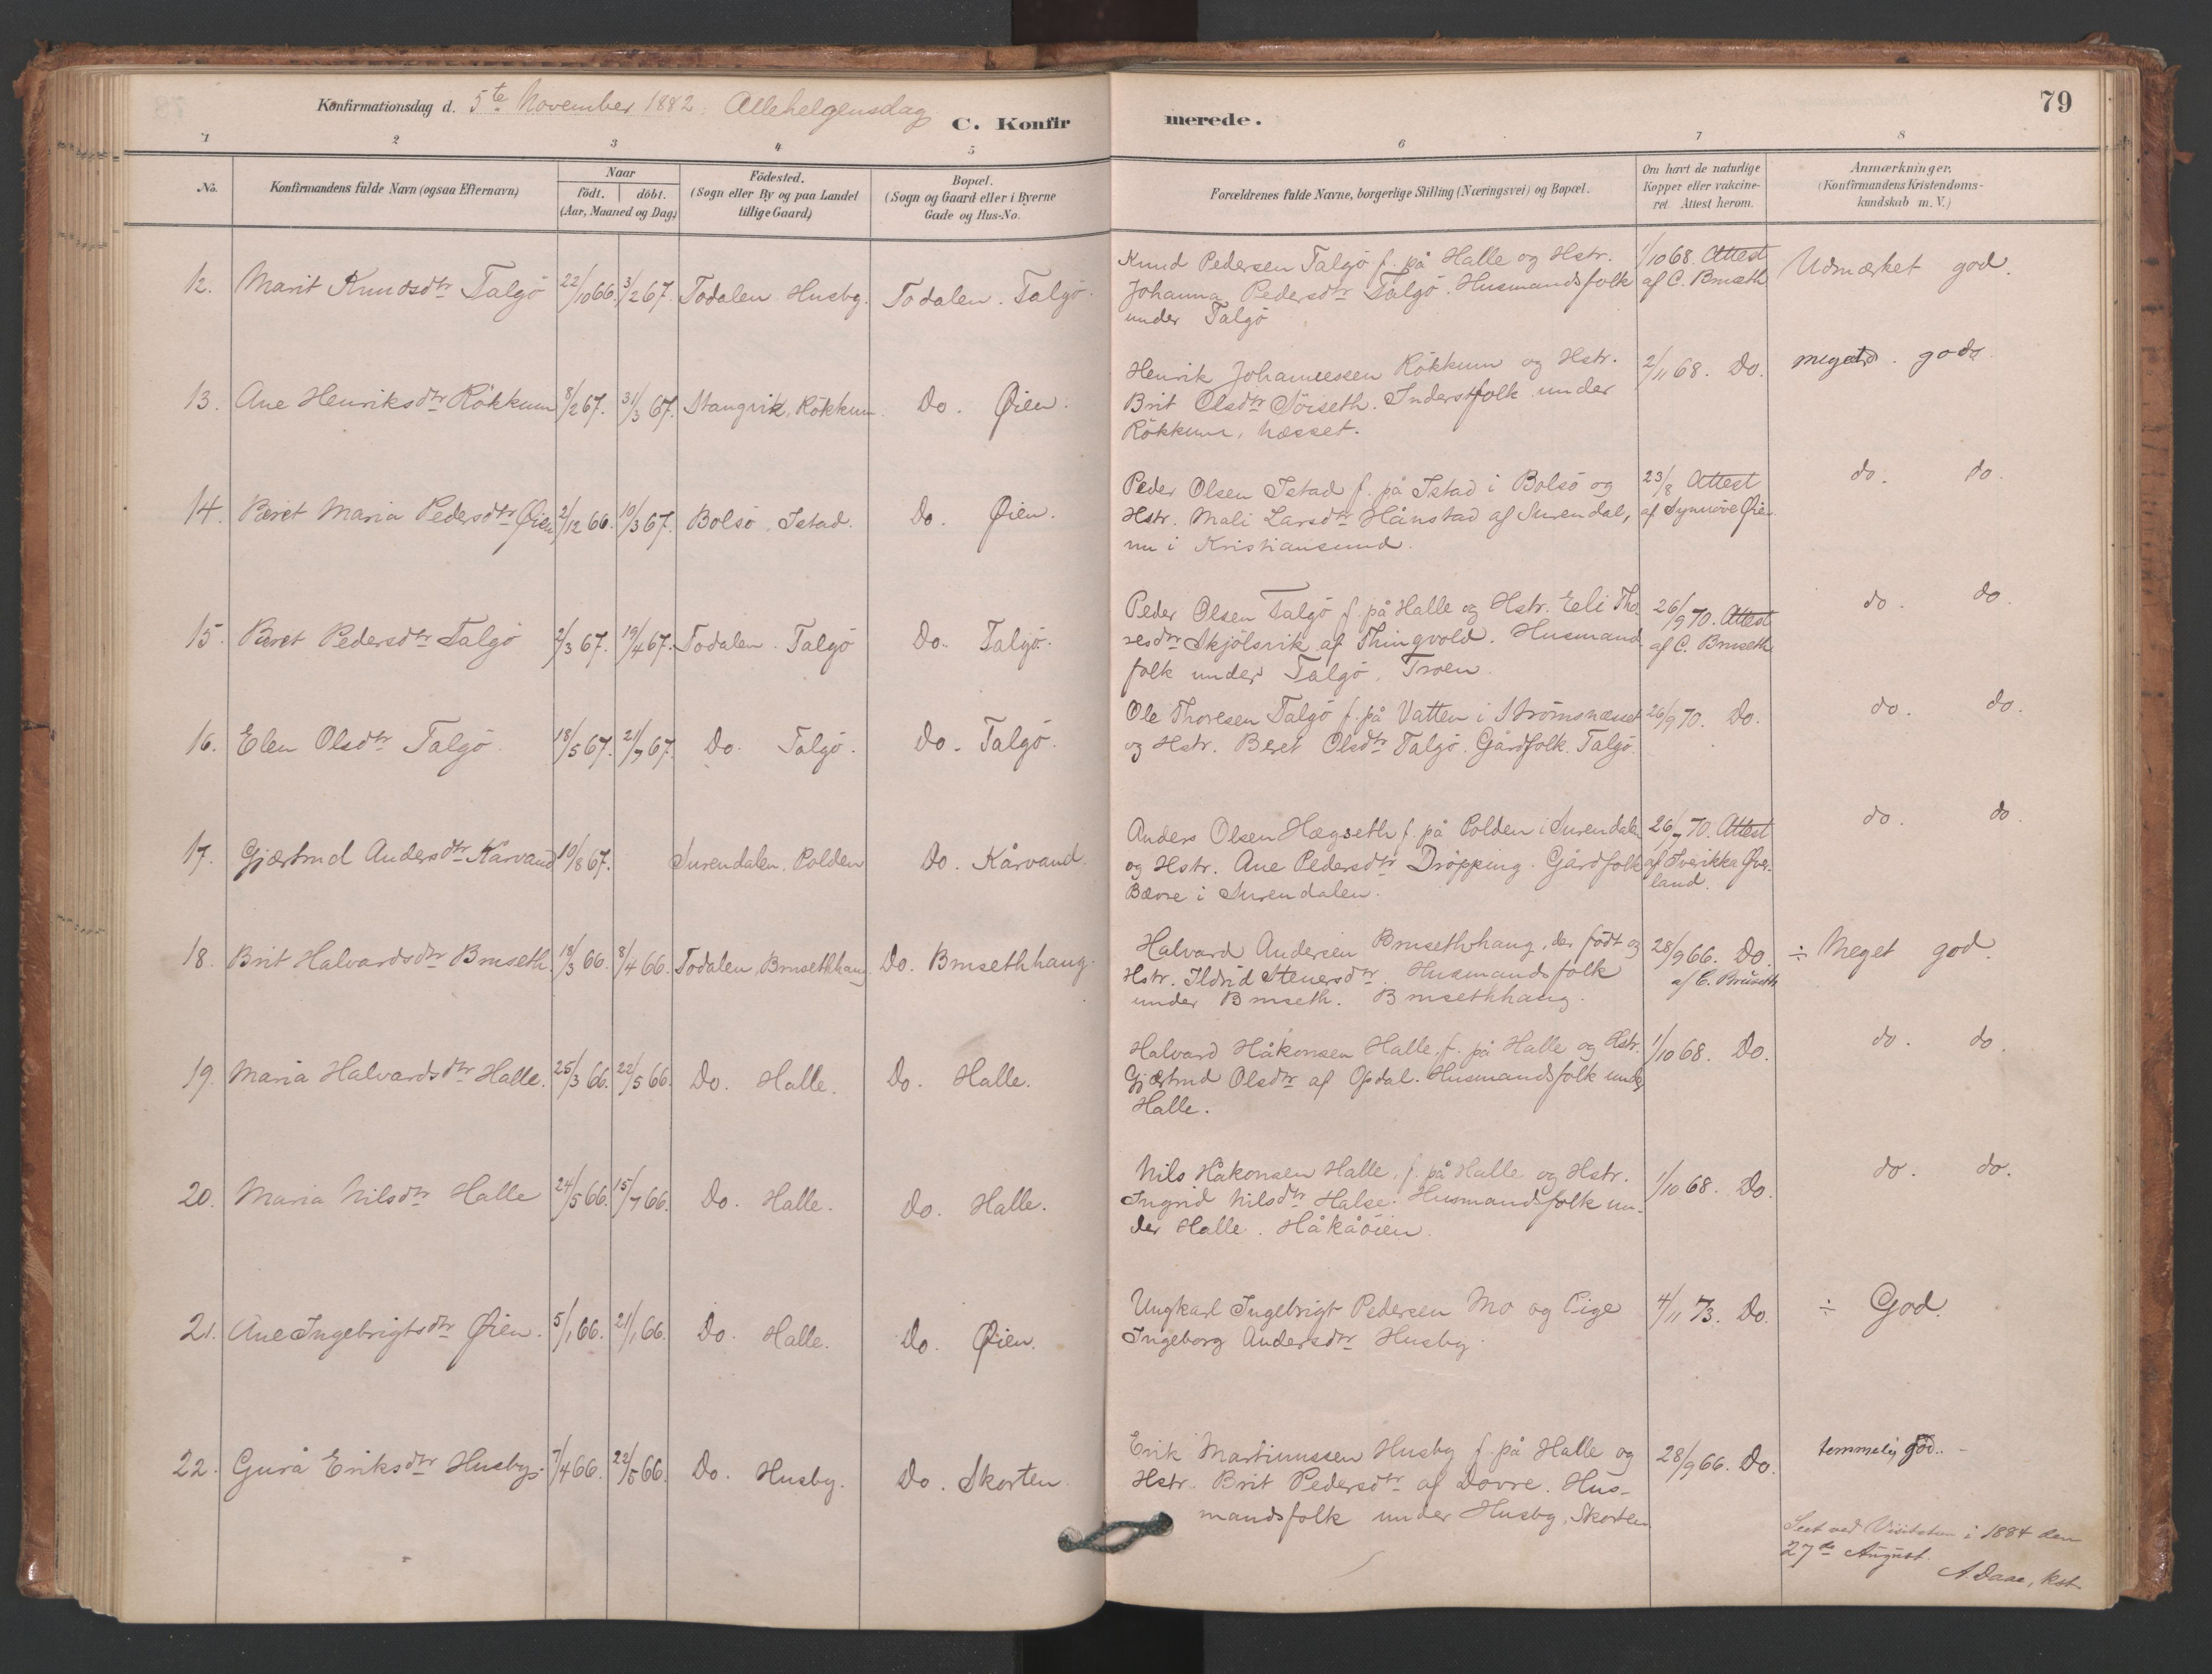 79
Konfirmationsdag d. 5te November 1882. Allehelgensdag
C. Konfirmerede.
1 2 3 4 5 6 7 8
No. Konfirmandens fulde Navn (ogsaa Efternavn) Naar födt. döbt. (Aar, Maaned og Dag) Födested. (Sogn eller By og paa Landet tillige Gaard) Bopæl. (Sogn og Gaard eller i Byerne Gade og Hus-No. Forældrenes fulde Navne, borgerlige Stilling (Næringsvei) og Bopæl. Om havt de naturlige Kopper eller vaccineret Attest herom. Anmærkninger. (Konfirmandens Kristendomskundskab m. V.)
12. Marit Knudsdtr Talgö 22/10 66. 3/2 67. Todalen Husby. Todalen. Talgö.
Knud Pedersen Talgö f. på Halle og Hstr.
Johanna Pedersdtr Talgö. Husmandsfolk
under Talgö
1/10 68. Attest
af C. Bruseth
Udmærket god.
13. Ane Henriksdtr Rökkum 8/2 67. 31/3 67. Stangvik, Rökkum. Do. Øien.
Henrik Johannessen Rökkum og Hstr.
Brit Olsdtr Söiseth. Inderstfolk under
Rökkum, Næsset.
2/11 68. Do.
meget god
14. Beret Maria Pedersdtr Øien 2/12 66. 10/3 67. Bolsö Istad. Do. Øien.
Peder Olsen Istad f. på Istad i Bolsö og
Hstr. Mali Larsdtr Hånstad af Surendal,
nu i Kristiansund.
23/8 Attest
af Synnöve Øien
do. do.
15. Beret Pedersdtr Talgö 2/3 67. 19/4 67. Todalen. Talgö Do. Talgö.
Peder Olsen Talgö f. på Halle og Hstr. Eeli Tho
resdtr Skjölsvik af Thingvold. Husmand
folk under Talgö, Troen.
26/9 70. Attest
af C. Bruseth
do. do.
16. Elen Olsdtr Talgö. 18/5 67. 21/7 67. Do. Talgö. Do. Talgö.
Ole Thoresen Talgö f. på Vatten i Strömsnæsset
og Hstr. Beret Olsdtr Talgö. Gårdfolk. Talgö.
26/9 70. Do.
do. do.
17. Gjærtrud Andersdtr Kårvand 10/8 67. Surendalen. Polden Do. Kårvand.
Anders Olsen Hægseth f. på Polden i Surendalen
og Hstr. Ane Pedersdtr Dröpping. Gårdfolk
Bævre i Surendalen.
26/7 70. Attest
af Sverikka Øver-
land.
do. do
18. Brit Halvardsdtr Bruseth. 18/3 66. 8/4 66. Todalen, Brusethhaug Do. Brusethhaug.
Halvard Andersen Brusethhaug, der födt og
Hstr. Ildrid Steuersdtr. Husmandsfolk
under Bruseth. Brusethhaug.
28/9 66. Do.
af C. Bruseth
÷ Meget god.
19. Maria Halvardsdtr Halle. 25/3 66. 22/5 66. Do. Halle. Do. Halle.
Halvard Håkonsen Halle f. på Halle og Hstr.
Gjærtrud Olsdtr af Opdal. Husmandsfolk under
Halle.
1/10 68. Do.
do. do.
20. Maria Nilsdtr Halle 24/5 66. 15/7 66. Do. Halle. Do. Halle.
Nils Håkonsen Halle. f. på Halle og Hstr.
Ingrid Nilsdtr Halse. Husmandsfolk un-
der Halle. Håkåöien.
1/10 68. Do.
do. do.
21. Ane Ingebrigtsdtr Øien. 5/1 66. 21/1 66. Do. Halle. Do. Øien.
Ungkarl Ingebrigt Pedersen Mo og Pige
Ingeborg Andersdtr Husby.
4/11 73. Do.
÷ God.
22. Gurå Eriksdtr Husby. 7/4 66. 22/5 66. Do. Husby. Do. Skorten.
Erik Martinussen Husby f. på Halle og
Hstr. Brit Pedersdtr af Dovre. Hus-
mandsfolk under Husby, Skorten
28/9 66. Do.
temmelig god.
Seet ved Visitatsen i 1884 den
27de August.
A Daae, kst.